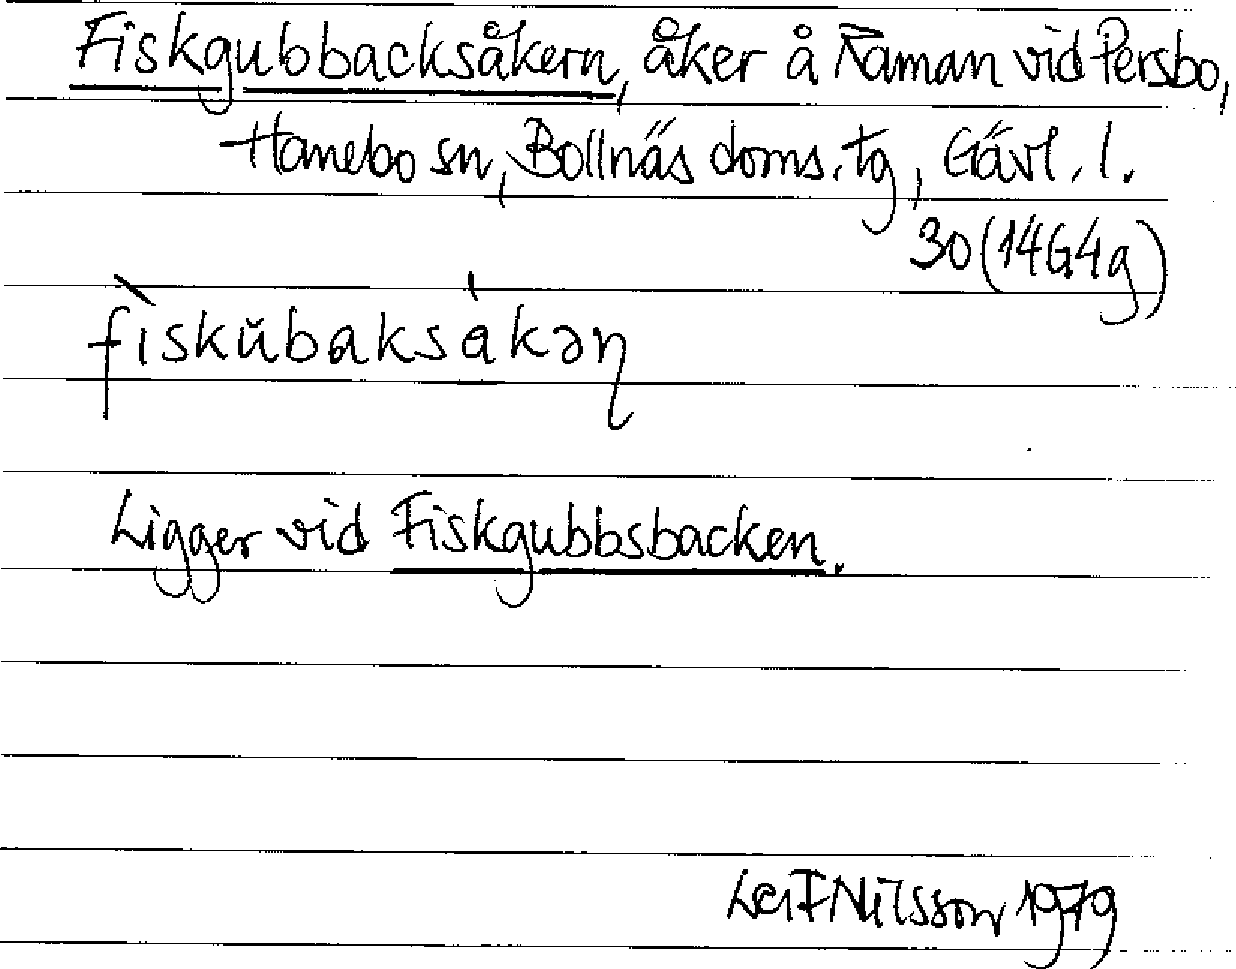 Fiskgubbacksåkern, åker å Raman vid Persbo,
Hanebo sn, Bollnäs doms. tg, Gävl. l.
30 (14G4g)
fìskŭbaksákəɳ
Ligger vid Fiskgubbsbacken.
Leif Nilsson 1979